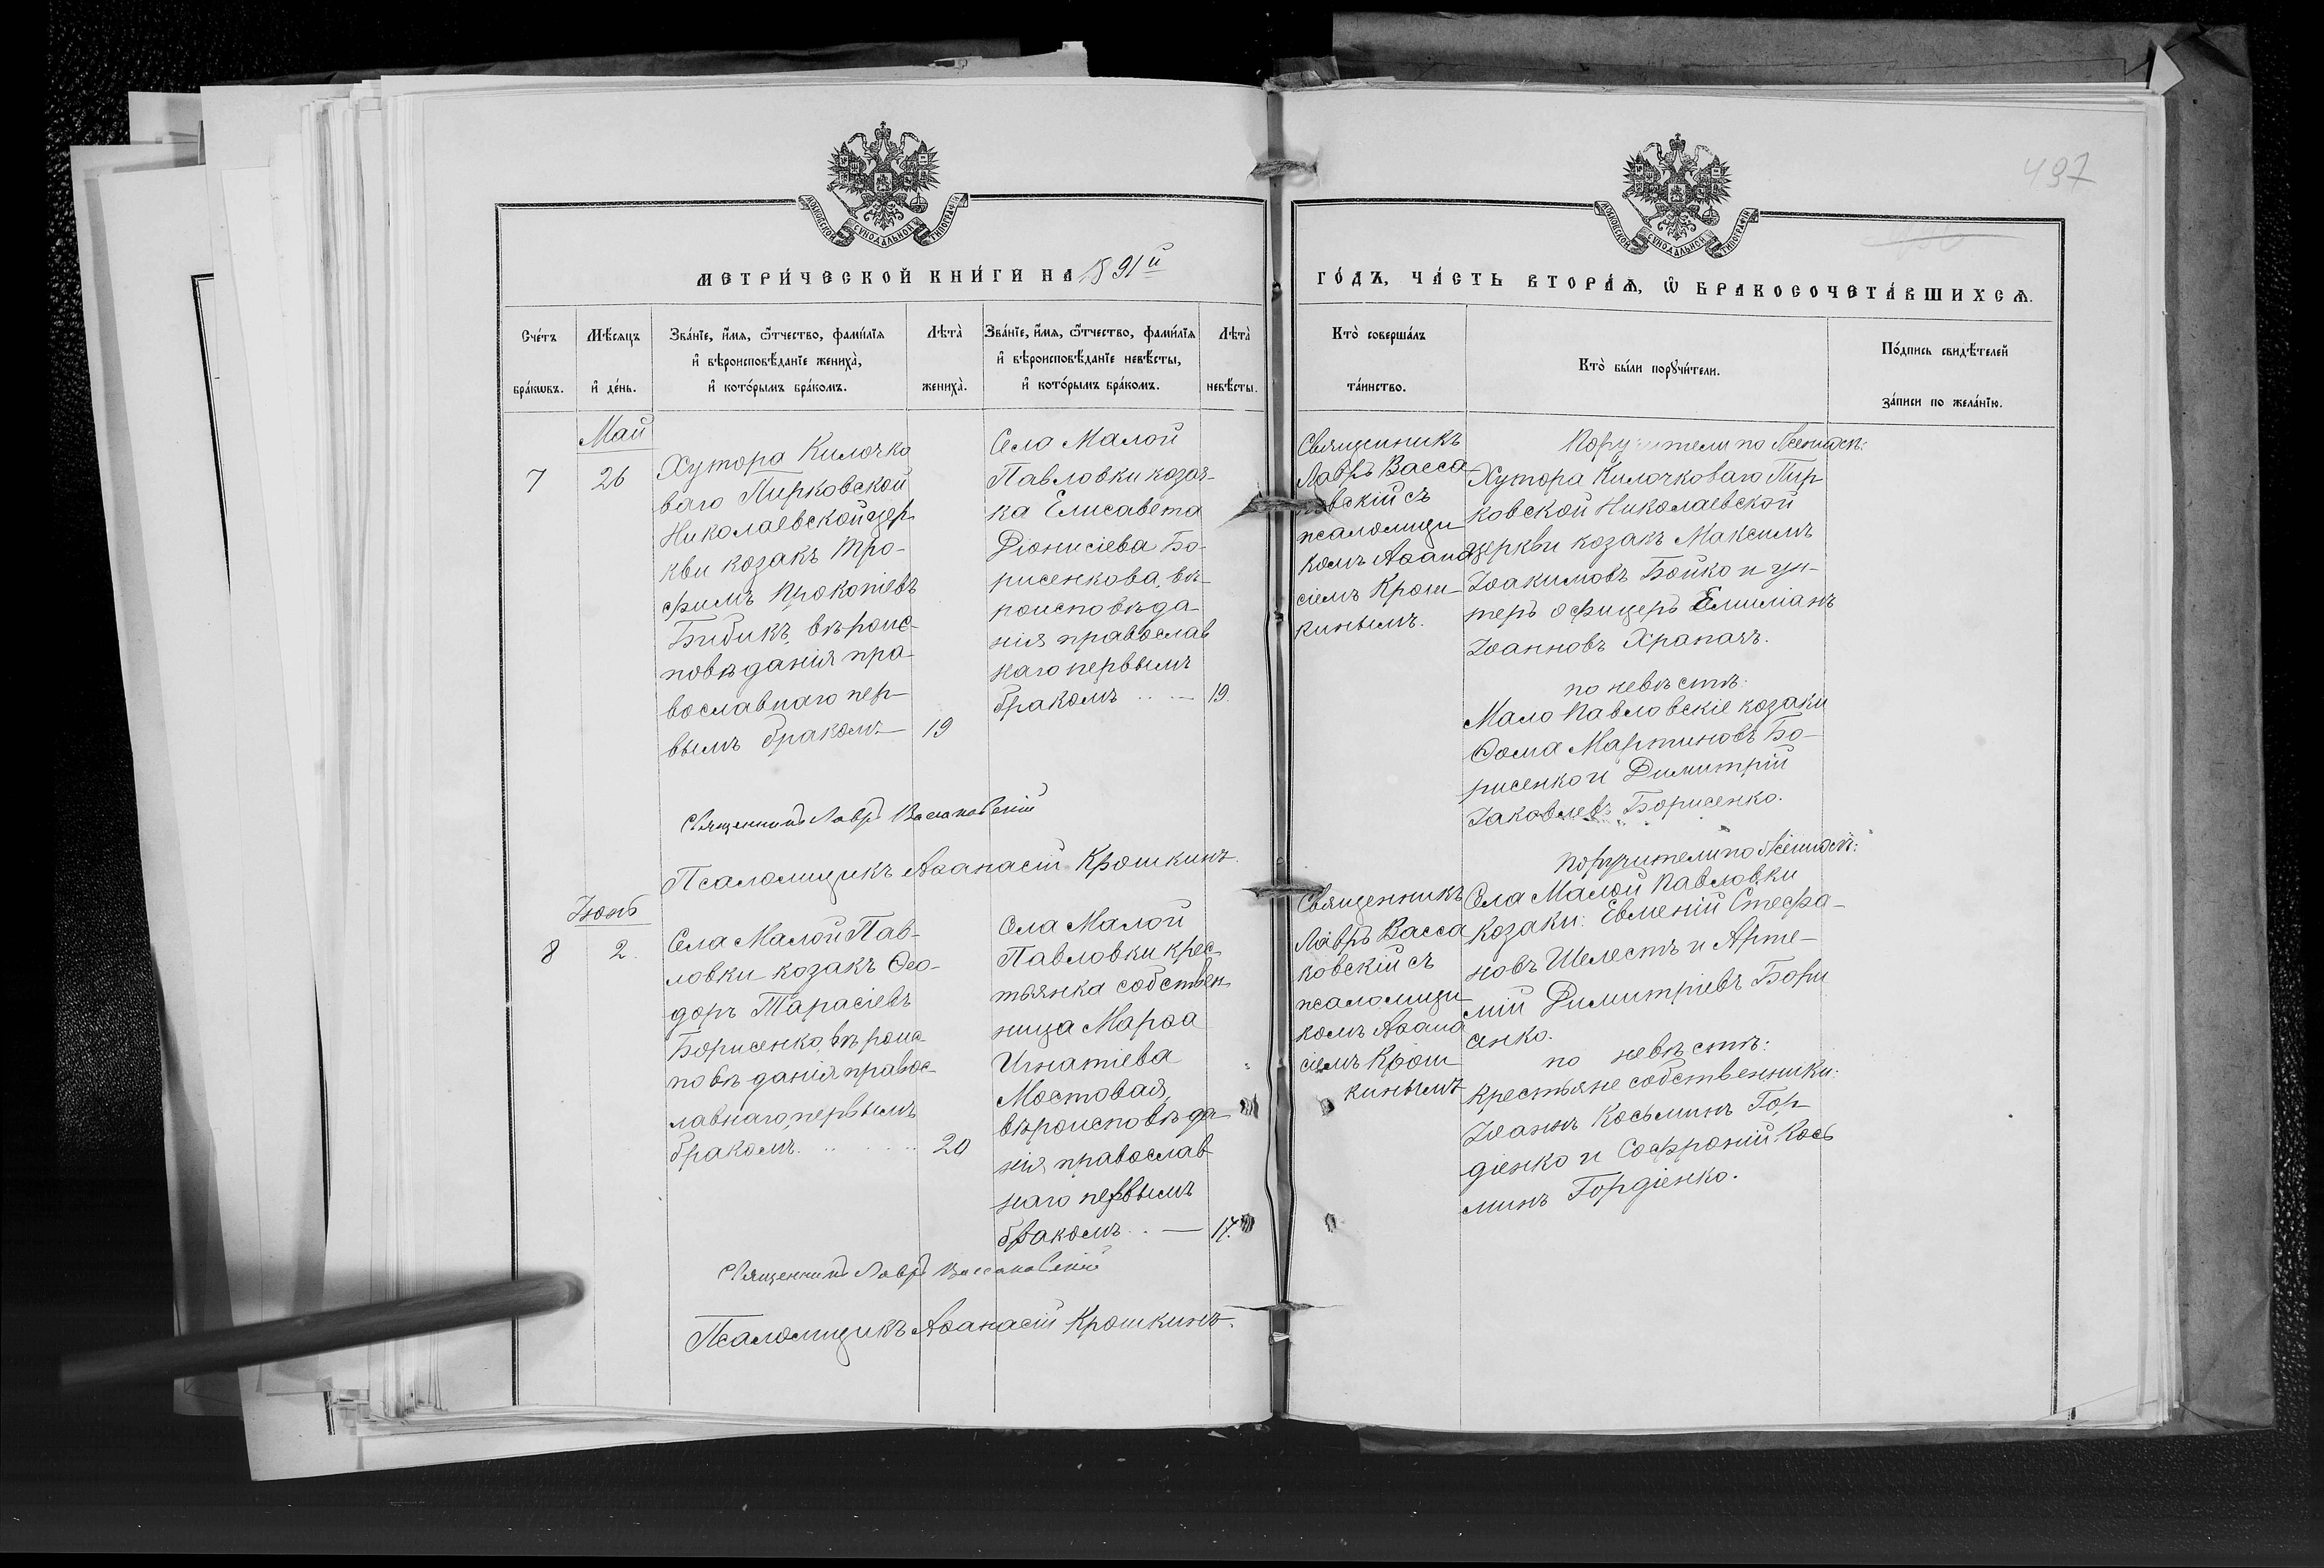 497
МОСКОВСКОЙ СѴНОДАЛЬНОЙ ТИПОГРАФІИ
МОСКОВСКОЙ СѴНОДАЛЬНОЙ ТИПОГРАФІИ
МЕТРИ́ЧЕСКОЙ КНИ́ГИ НА 1891й
ГО́ДЪ, ЧА́СТЬ ВТОРА́Ѧ, Ѽ БРАКОСОЧЕТА́ВШИХСѦ.
Сче́тъ
бра́кѡвъ.
Мѣ́сяцъ
и҆ де́нь.
Зва́нїе, и҆́мя, ѻ҆́тчество, фами́лїя
и҆ вѣроисповѣ́данїе жениха̀,
и҆ кото́рымъ бра́комъ.
Лѣта̀
жениха̀.
Зва́нїе, и҆́мя, ѻ҆́тчество, фами́лїя
и҆ вѣроисповѣ́данїе невѣ́сты,
и҆ кото́рымъ бра́комъ.
Лѣта̀
невѣ́сты.
Кто̀ соверша́лъ
та́инство.
Кто̀ бы́ли порꙋчи́тели.
По́дпись свидѣ́телей
за́писи по жела́нїю.
Май
7
26
Хутора Килочко
ваго Пирковской
Николаевской цер
кви козакъ Тро-
фимъ Прокопіевъ
Бибикъ, вѣроис-
повѣданія пра-
вославнаго пер-
вымъ бракомъ —
19
Села Малой
Павловки козач-
ка Елисавета
Діонисіева Бо-
рисенкова, вѣ-
роисповѣда-
нія православ
наго первымъ
бракомъ .. —
19.
Священникъ
Лавръ Васса
ковскій съ
псаломщи
комъ Аѳана
сіемъ Крош-
кинымъ.
Поручители по женихѣ:
Хутора Килочковаго Пир
ковской Николаевской
церкви козакъ Максимъ
Іоакимовъ Бойко и ун-
теръ офицеръ Емиліанъ
Іоанновъ Храпачъ.
по невѣстѣ:
Мало Павловскіе козаки
Ѳома Мартиновъ Бо-
рисенко и Димитрій
Іаковлевъ Борисенко.
Священникъ Лавръ Вассаковскій
Псаломщикъ Аѳанасій Крошкинъ.
Іюнь
8
2.
Села Малой Пав-
ловки козакъ Ѳео-
доръ Тарасіевъ
Борисенко, вѣроис-
повѣданія правос-
лавнаго, первымъ
бракомъ. .. .. ..
20
Села Малой
Павловки крес-
тьянка собствен
ница Марѳа
Игнатіева
Мостовая,
вѣроисповѣда-
нія, православ
наго первымъ
бракомъ .. —
17.
Священникъ
Лавръ Васса
ковскій съ
псаломщи
комъ Аѳана
сіемъ Крош
кинымъ
Поручители по женихѣ:
Села Малой Павловки
козаки: Евменій Стефа-
новъ Шелестъ и Арте-
мій Димитріевъ Бори
сенко.
по невѣстѣ:
Крестьяне собственники:
Іоаннъ Косьминъ Гор-
діенко и Софроній Кось
минъ Гордіенко.
Священникъ Лавръ Вассаковскій
Псаломщикъ Аѳанасій Крошкинъ.